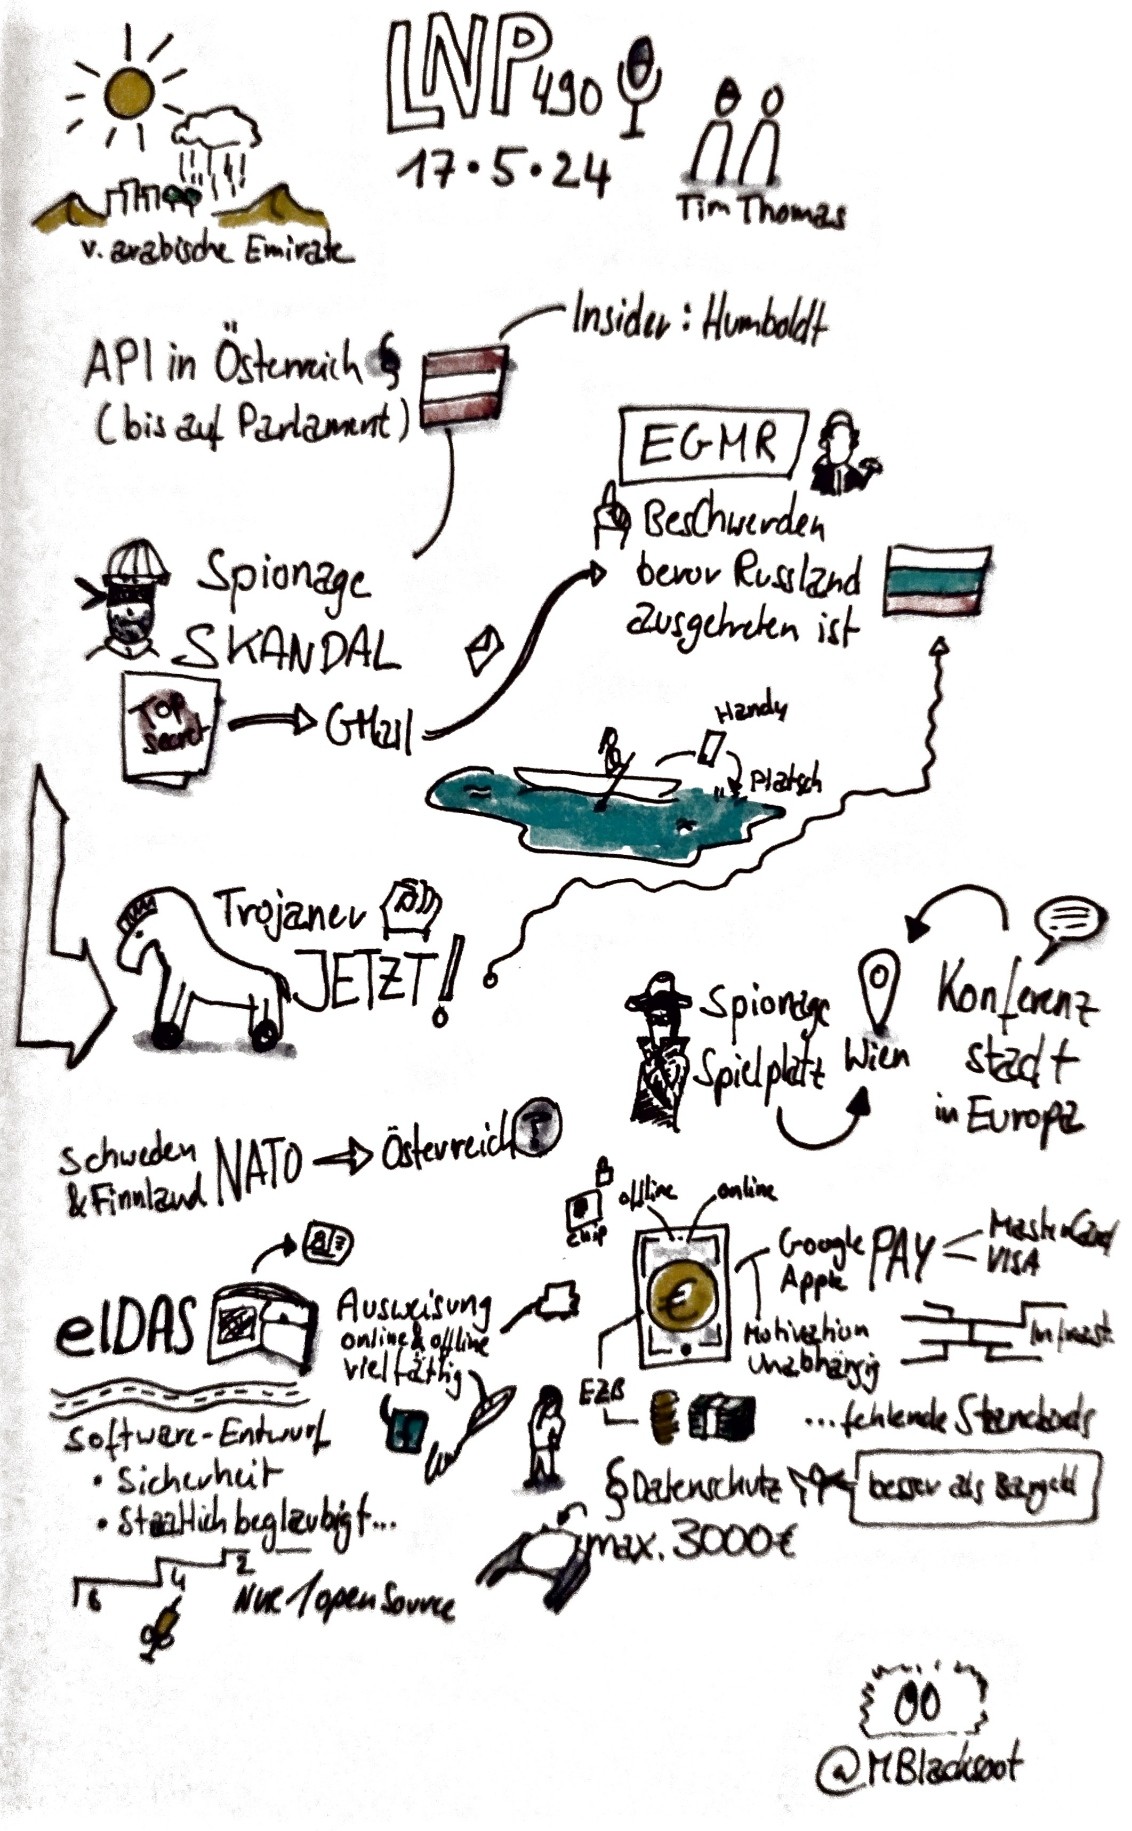 LNP 490
17.5.24
Tim Thomas
v. arabische Emirate
Insider: Humboldt
API in Österreich §
(bis auf Parlament)
EGMR
Beschwerden
bevor Russland
ausgetreten ist
Spionage
SKANDAL
Top
secret
GMail
Handy
Platsch
Trojaner
JETZT!
Spionage
Spielplatz
Wien
Konferenz
stadt
in Europa
Schweden
& Finnland
NATO
Österreich
!
offline
online
chip
€
Google
Apple
PAY
MasterCard
VISA
Motivation
Unabhängig
Infrast.
EZB
...fehlende Standards
§ Datenschutz
besser als Bargeld
max. 3000€
eIDAS
Ausweisung
online & offline
vielfältig
Software-Entwurf
• Sicherheit
• Staatlich beglaubigt...
6
4
2
Nur 1 open Source
@MBlacksoot